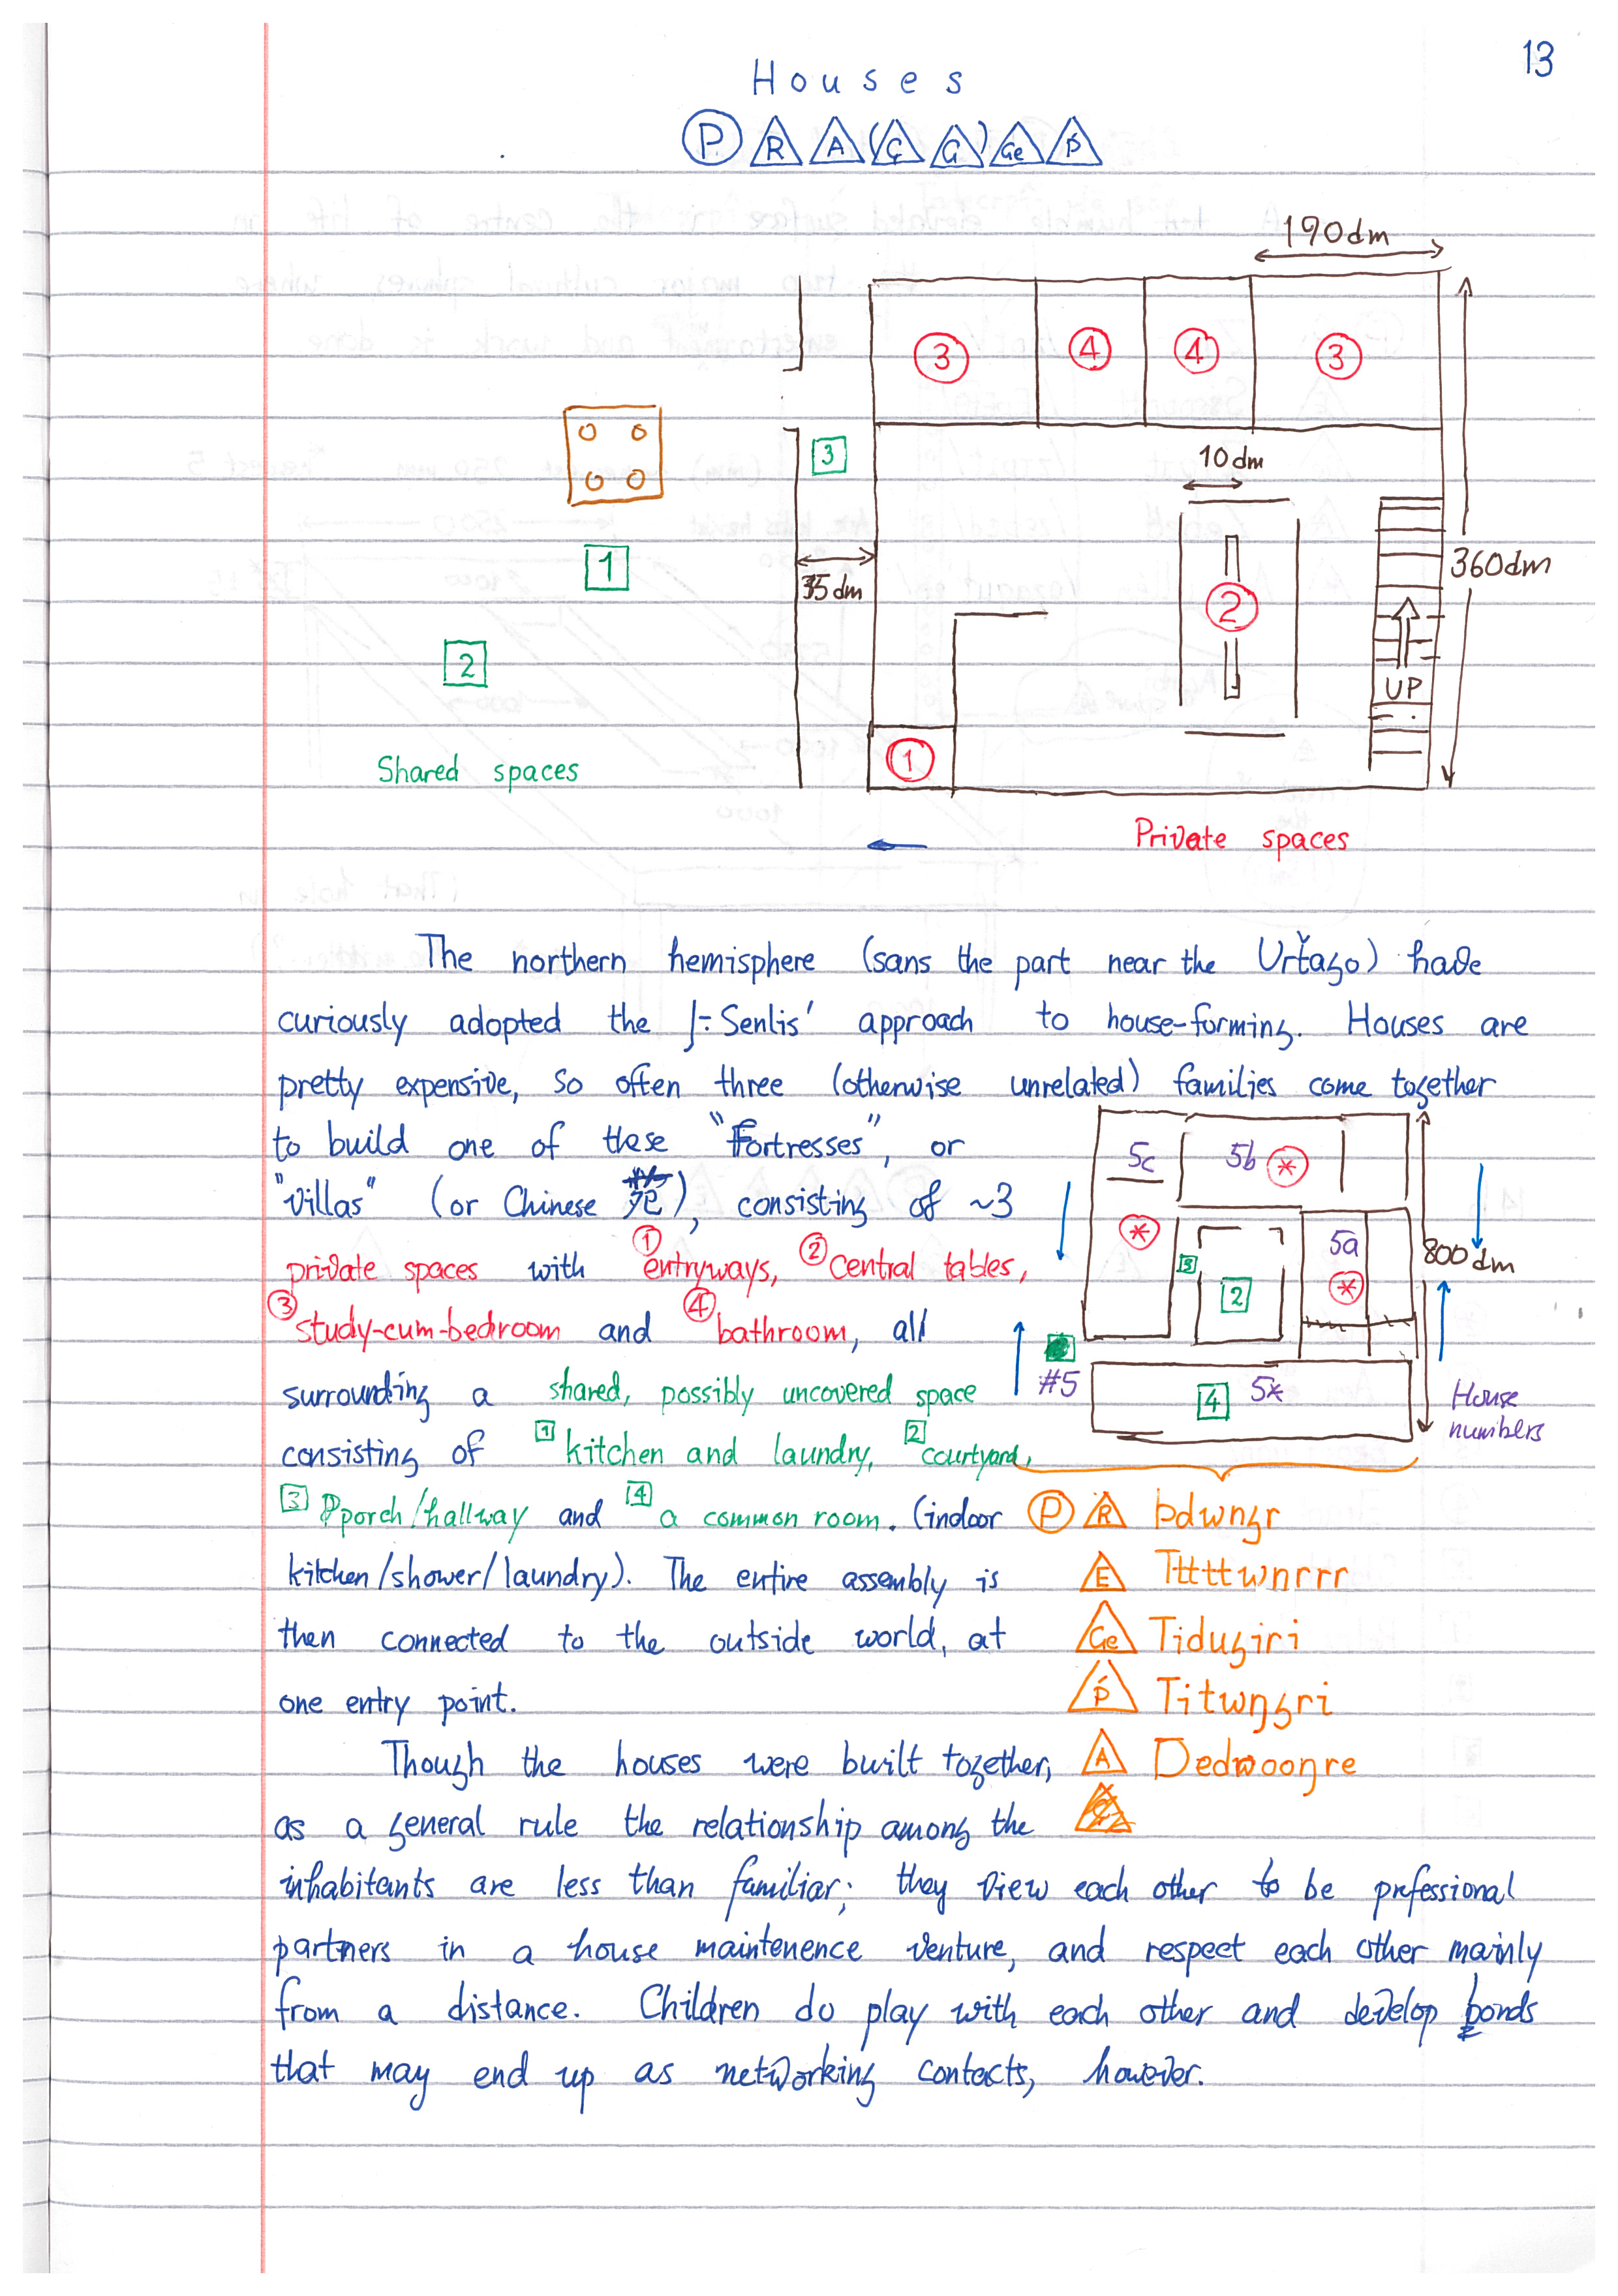 13
Houses
P R A (Ç G) Ge Ṕ
190dm
3 4 4 3
3
10dm
1
35dm
2
360dm
2
UP
Shared spaces
1
Private spaces
The northern hemisphere (sans the part near the Urťago) have
curiously adopted the Senlis' approach to house-forming. Houses are
pretty expensive, so often three (otherwise unrelated) families come together
to build one of these "Fortresses", or
"Villas" (or Chinese 苑), consisting of ~3
private spaces with ① entryways, ② central tables,
③ study-cum-bedroom and ④ bathroom, all
surrounding a shared, possibly uncovered space
consisting of 1 kitchen and laundry, 2 courtyard,
3 porch/hallway and 4 a common room. (indoor
kitchen/shower/laundry). The entire assembly is
then connected to the outside world, at
one entry point.
Though the houses were built together,
as a general rule the relationship among the
inhabitants are less than familiar; they view each other to be prefessional
partners in a house maintenence venture, and respect each other mainly
from a distance. Children do play with each other and develop bonds
that may end up as networking contacts, however.
5c 5b *
* 5a
3 800dm
2 *
#5
4 5*
House
numbers
P R þdwngr
E Tttttwnrrr
Ge Tidugiri
Ṕ Titwŋgri
A Dedwooŋre